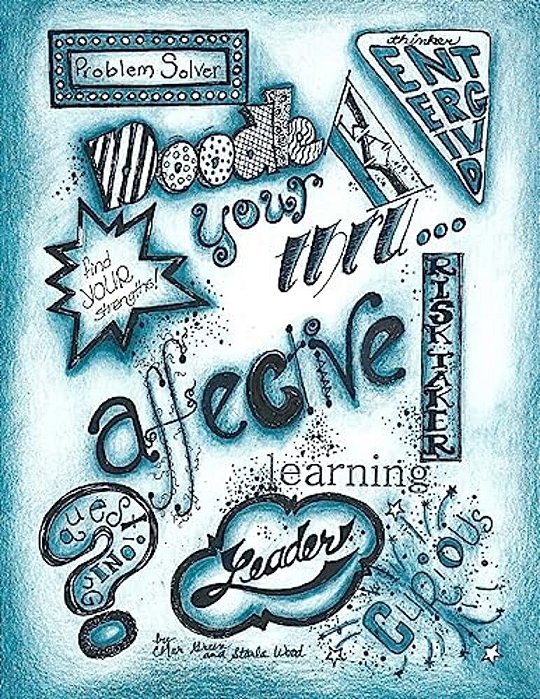 Problem Solver
DIVERGENT
thinker
Doodle
your
thru...
find
YOUR
strengths!
RISK TAKER
affective
learning
Questioning
Leader
Curious
by
and Starla Wood